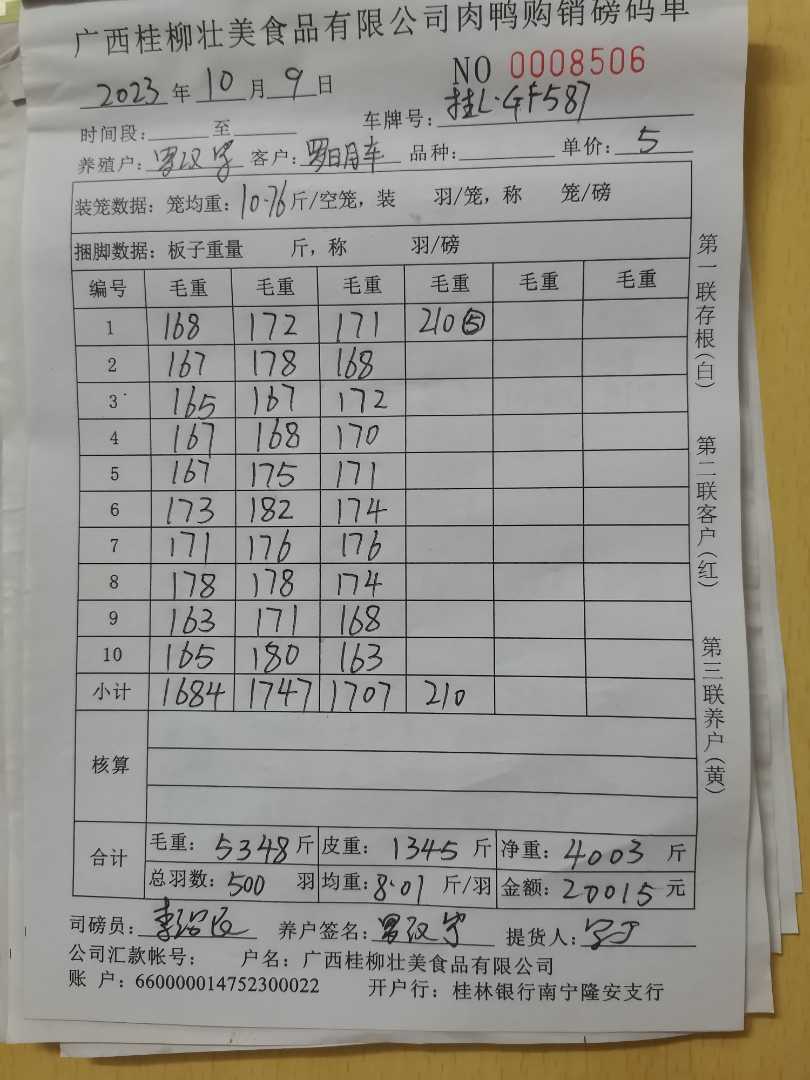 广西桂柳壮美食品有限公司肉鸭购销磅码单
NO 0008506
2023年10月9日
时间段: 至 车牌号: 桂L·GF587
养殖户: 罗汉 客户: 罗日月车 品种: 单价: 5
装笼数据: 笼均重: 10.76斤/空笼, 装 羽/笼, 称 笼/磅
捆脚数据: 板子重量 斤, 称 羽/磅
编号 毛重 毛重 毛重 毛重 毛重 毛重
1 168 172 171 210⑤
2 167 178 168
3 165 167 172
4 167 168 170
5 167 175 171
6 173 182 174
7 171 176 176
8 178 178 174
9 163 171 168
10 165 180 163
小计 1684 1747 1707 210
核算
合计 毛重: 5348斤 皮重: 1345斤 净重: 4003斤
总羽数: 500羽 均重: 8.01斤/羽 金额: 20015元
司磅员: 李 养户签名: 罗汉 提货人:
公司汇款帐号: 户名: 广西桂柳壮美食品有限公司
账 户: 660000014752300022 开户行: 桂林银行南宁隆安支行
第一联存根(白) 第二联客户(红) 第三联养户(黄)